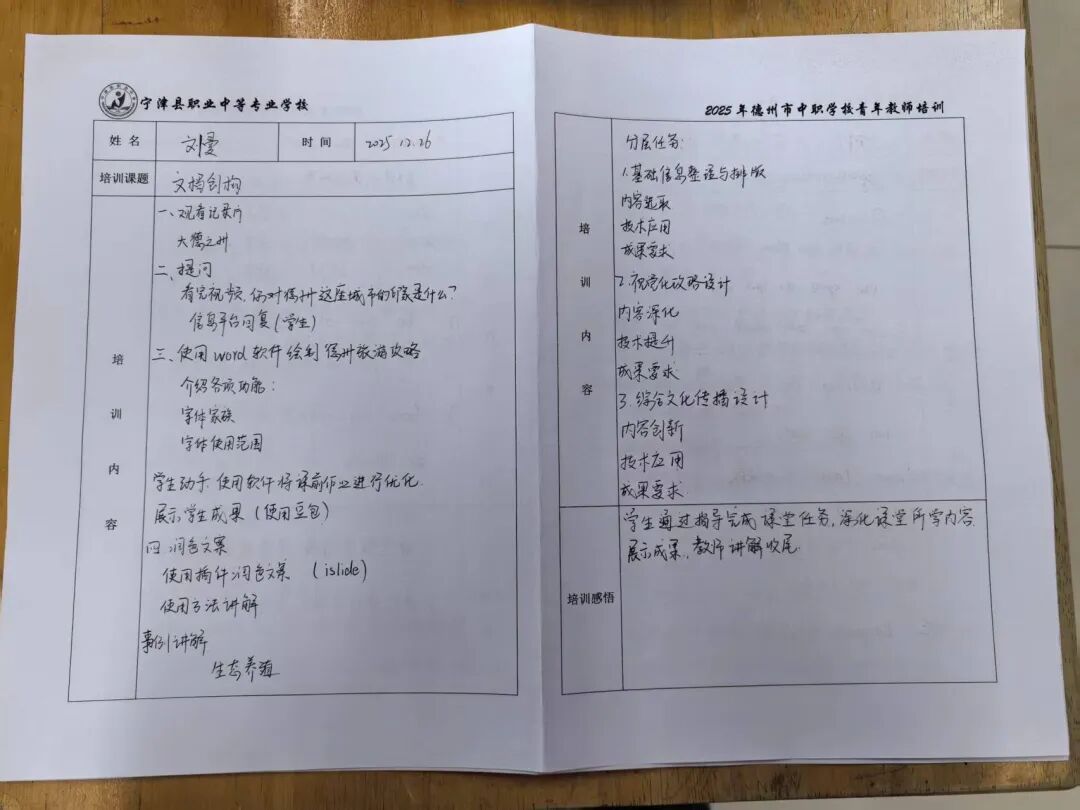 宁津县职业中等专业学校
姓名 刘曼 时间 2025.12.26
培训课题 文档创构
培训内容
一、观看记录片
大德之州
二、提问
看完视频，你对德州这座城市的印象是什么？
信息平台回复(学生)
三、使用word软件绘制德州旅游攻略
介绍各项功能：
字体家族
字体使用范围
学生动手：使用软件将课前作业进行优化.
展示学生成果（使用豆包）
四.润色文案
使用插件润色文案 （islide）
使用方法讲解
事例讲解
生态养殖
2025年德州市中职学校青年教师培训
培训内容
分层任务：
1.基础信息整理与排版
内容选取
技术应用
成果要求
2.视觉化攻略设计
内容深化
技术提升
成果要求
3.综合文化传播设计
内容创新
技术应用
成果要求.
培训感悟
学生通过指导完成课堂任务，深化课堂所学内容.
展示成果，教师讲解收尾.